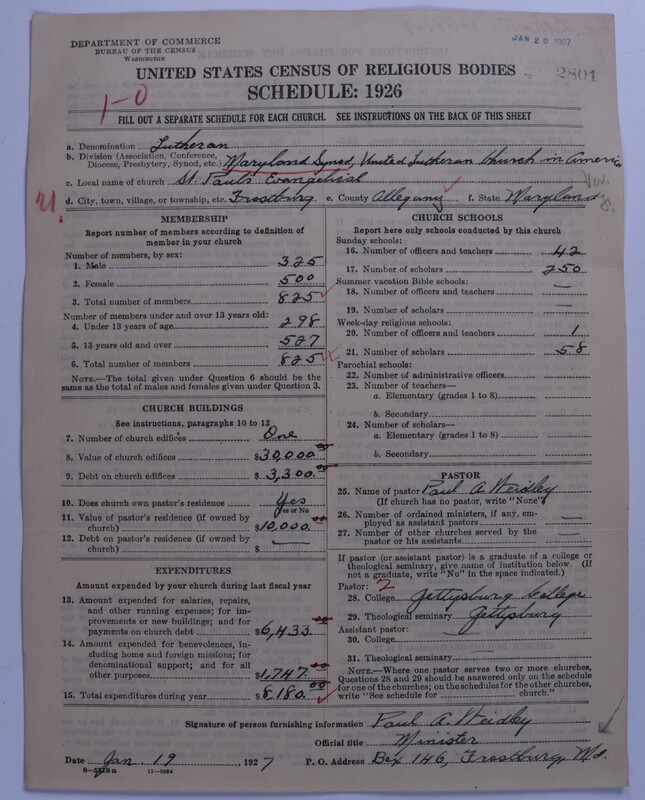 DEPARTMENT OF COMMERCE
BUREAU OF THE CENSUS
WASHINGTON
JAN 20 1927
UNITED STATES CENSUS OF RELIGIOUS BODIES
2801
SCHEDULE: 1926
1-0
FILL OUT A SEPARATE SCHEDULE FOR EACH CHURCH. SEE INSTRUCTIONS ON THE BACK OF THIS SHEET
a. Denomination Lutheran
b. Division (Association, Conference, Diocese, Presbytery, Synod, etc.) Maryland Synod, United Lutheran Church in America
c. Local name of church St. Paul's Evangelical
d. City, town, village, or township, etc. Frostburg e. County Allegany f. State Maryland
21.
MEMBERSHIP
Report number of members according to definition of
member in your church
Number of members, by sex:
1. Male 325
2. Female 500
3. Total number of members 825
Number of members under and over 13 years old:
4. Under 13 years of age 298
5. 13 years old and over 527
6. Total number of members 825
NOTE.—The total given under Question 6 should be the
same as the total of males and females given under Question 3.
CHURCH BUILDINGS
See instructions, paragraphs 10 to 12
7. Number of church edifices One
8. Value of church edifices $30,000.00
9. Debt on church edifices $3,300.00
10. Does church own pastor's residence Yes
Yes or No
11. Value of pastor's residence (if owned by
church) $10,000.00
12. Debt on pastor's residence (if owned by
church) $ —
EXPENDITURES
Amount expended by your church during last fiscal year
13. Amount expended for salaries, repairs,
and other running expenses; for im-
provements or new buildings; and for
payments on church debt $6,433.00
14. Amount expended for benevolences, in-
cluding home and foreign missions; for
denominational support; and for all
other purposes $1,747.00
15. Total expenditures during year $8,180.00
CHURCH SCHOOLS
Report here only schools conducted by this church
Sunday schools:
16. Number of officers and teachers 42
17. Number of scholars 250
Summer vacation Bible schools:
18. Number of officers and teachers —
19. Number of scholars —
Week-day religious schools:
20. Number of officers and teachers 1
21. Number of scholars 58
Parochial schools:
22. Number of administrative officers
23. Number of teachers—
a. Elementary (grades 1 to 8)
b. Secondary
24. Number of scholars—
a. Elementary (grades 1 to 8)
b. Secondary
PASTOR
25. Name of pastor Paul A. Weidley
(If church has no pastor, write "None")
26. Number of ordained ministers, if any, em-
ployed as assistant pastors —
27. Number of other churches served by the
pastor or his assistants —
If pastor (or assistant pastor) is a graduate of a college or
theological seminary, give name of institution below. (If
not a graduate, write "No" in the space indicated.)
Pastor: 2
28. College Gettysburg College
29. Theological seminary Gettysburg
Assistant pastor: —
30. College
31. Theological seminary —
NOTE.—Where one pastor serves two or more churches,
Questions 28 and 29 should be answered only on the schedule
for one of the churches; on the schedules for the other churches,
write "See schedule for church."
Signature of person furnishing information Paul A. Weidley
Official title Minister
Date Jan. 19, 1927 P. O. Address Box 146, Frostburg, Md.
8-5518a 11-9084